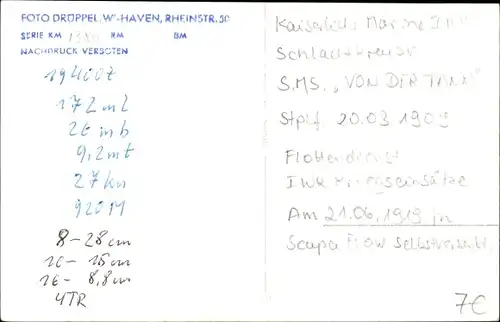 FOTO DRÜPPEL, W'HAVEN, RHEINSTR. 50
SERIE KM RM BM
NACHDRUCK VERBOTEN
19400t
172 m L
26 m b
9,2 mt
27 kn
920 M
8 - 28 cm
10 - 15 cm
16 - 8,8 cm
4TR
Kaiserliche Marine
Schlachtkreuzer
S.M.S. „VON DER TANN"
Stplf 20.03 1909
Flottendienst
IWK Kriegseinsätze
Am 21.06.1919 in
Scapa Flow selbstversenkt
7€